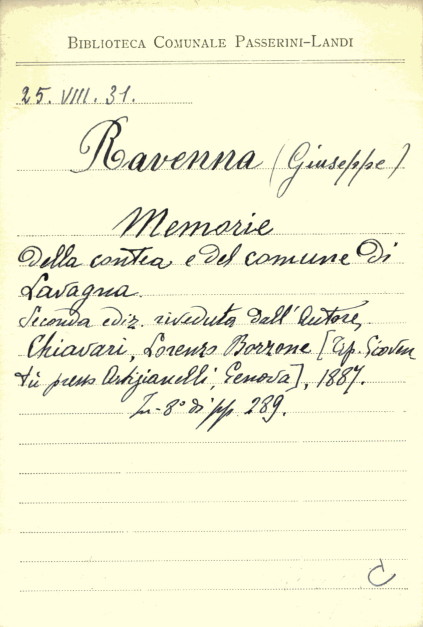 BIBLIOTECA COMUNALE PASSERINI-LANDI
25. VIII. 31.
Ravenna (Giuseppe)
Memorie
della contea e del comune di
Lavagna.
Seconda ediz. riveduta dall'Autore,
Chiavari, Lorenzo Borzone [Tip. Gioven
tù presso Artigianelli, Genova], 1887.
In-8° di pp. 289.
C